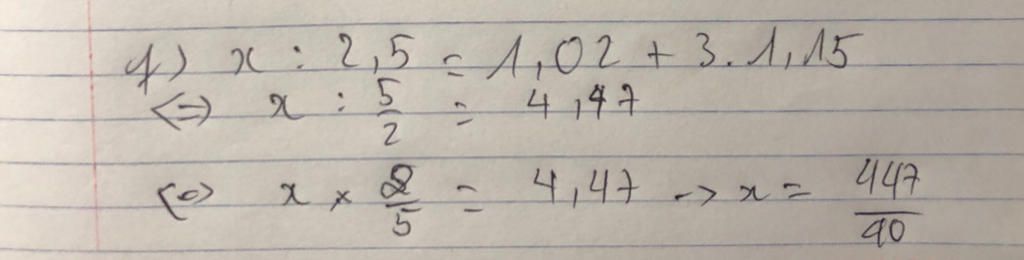 f) x : 2,5 = 1,02 + 3.1,15
<=> x : 5/2 = 4,47
<=> x × 2/5 = 4,47 -> x = 447/40